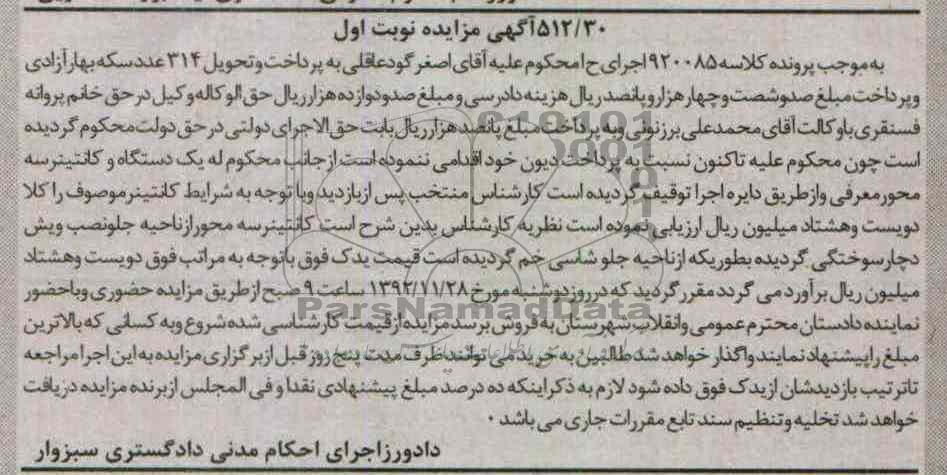 ۵۱۲/۳۰آگهی مزایده نوبت اول
به موجب پرونده کلاسه ۹۲۰۰۸۵ اجرای ح ا محکوم علیه آقای اصغر گودعاقلی به پرداخت وتحویل ۳۱۴ عدد سکه بهار آزادی
و پرداخت مبلغ صدو شصت و چهار هزار و پانصد ریال هزینه دادرسی و مبلغ صدودوازده هزار ریال حق الوکاله وکیل در حق خانم پروانه
فسنقری باوکالت آقای محمدعلی برزنونی وبه پرداخت مبلغ پانصد هزار ریال بابت حق الاجرای دولتی در حق دولت محکوم گردیده
است چون محکوم علیه تاکنون نسبت به پرداخت دیون خود اقدامی ننموده است از جانب محکوم له یک دستگاه و کانتینر سه
محور معرفی و از طریق دایره اجرا توقیف گردیده است کارشناس منتخب پس از بازدید وبا توجه به شرایط کانتینر موصوف را کلا
دویست وهشتاد میلیون ریال ارزیابی نموده است نظریه کارشناس بدین شرح است کانتینر سه محور از ناحیه جلو نصب ویش
دچار سوختگی گردیده بطوریکه از ناحیه جلو شاسی خم گردیده است قیمت یدک فوق باتوجه به مراتب فوق دویست وهشتاد
میلیون ریال برآورد می گردد مقرر گردید که در روز دوشنبه مورخ ۱۳۹۲/۱۱/۲۸ ساعت ۹ صبح از طریق مزایده حضوری وباحضور
نماینده دادستان محترم عمومی وانقلاب شهرستان به فروش برسد مزایده از قیمت کارشناسی شده شروع وبه کسانی که بالاترین
مبلغ را پیشنهاد نمایند واگذار خواهد شد طالبین به خرید می توانند ظرف مدت پنج روز قبل از برگزاری مزایده به این اجرا مراجعه
تاترتیب بازدیدشان از یدک فوق داده شود لازم به ذکر اینکه ده درصد مبلغ پیشنهادی نقدا و فی المجلس از برنده مزایده دریافت
خواهد شد تخلیه وتنظیم سند تابع مقررات جاری می باشد ۰
دادورز اجرای احکام مدنی دادگستری سبزوار
ParsNamadData